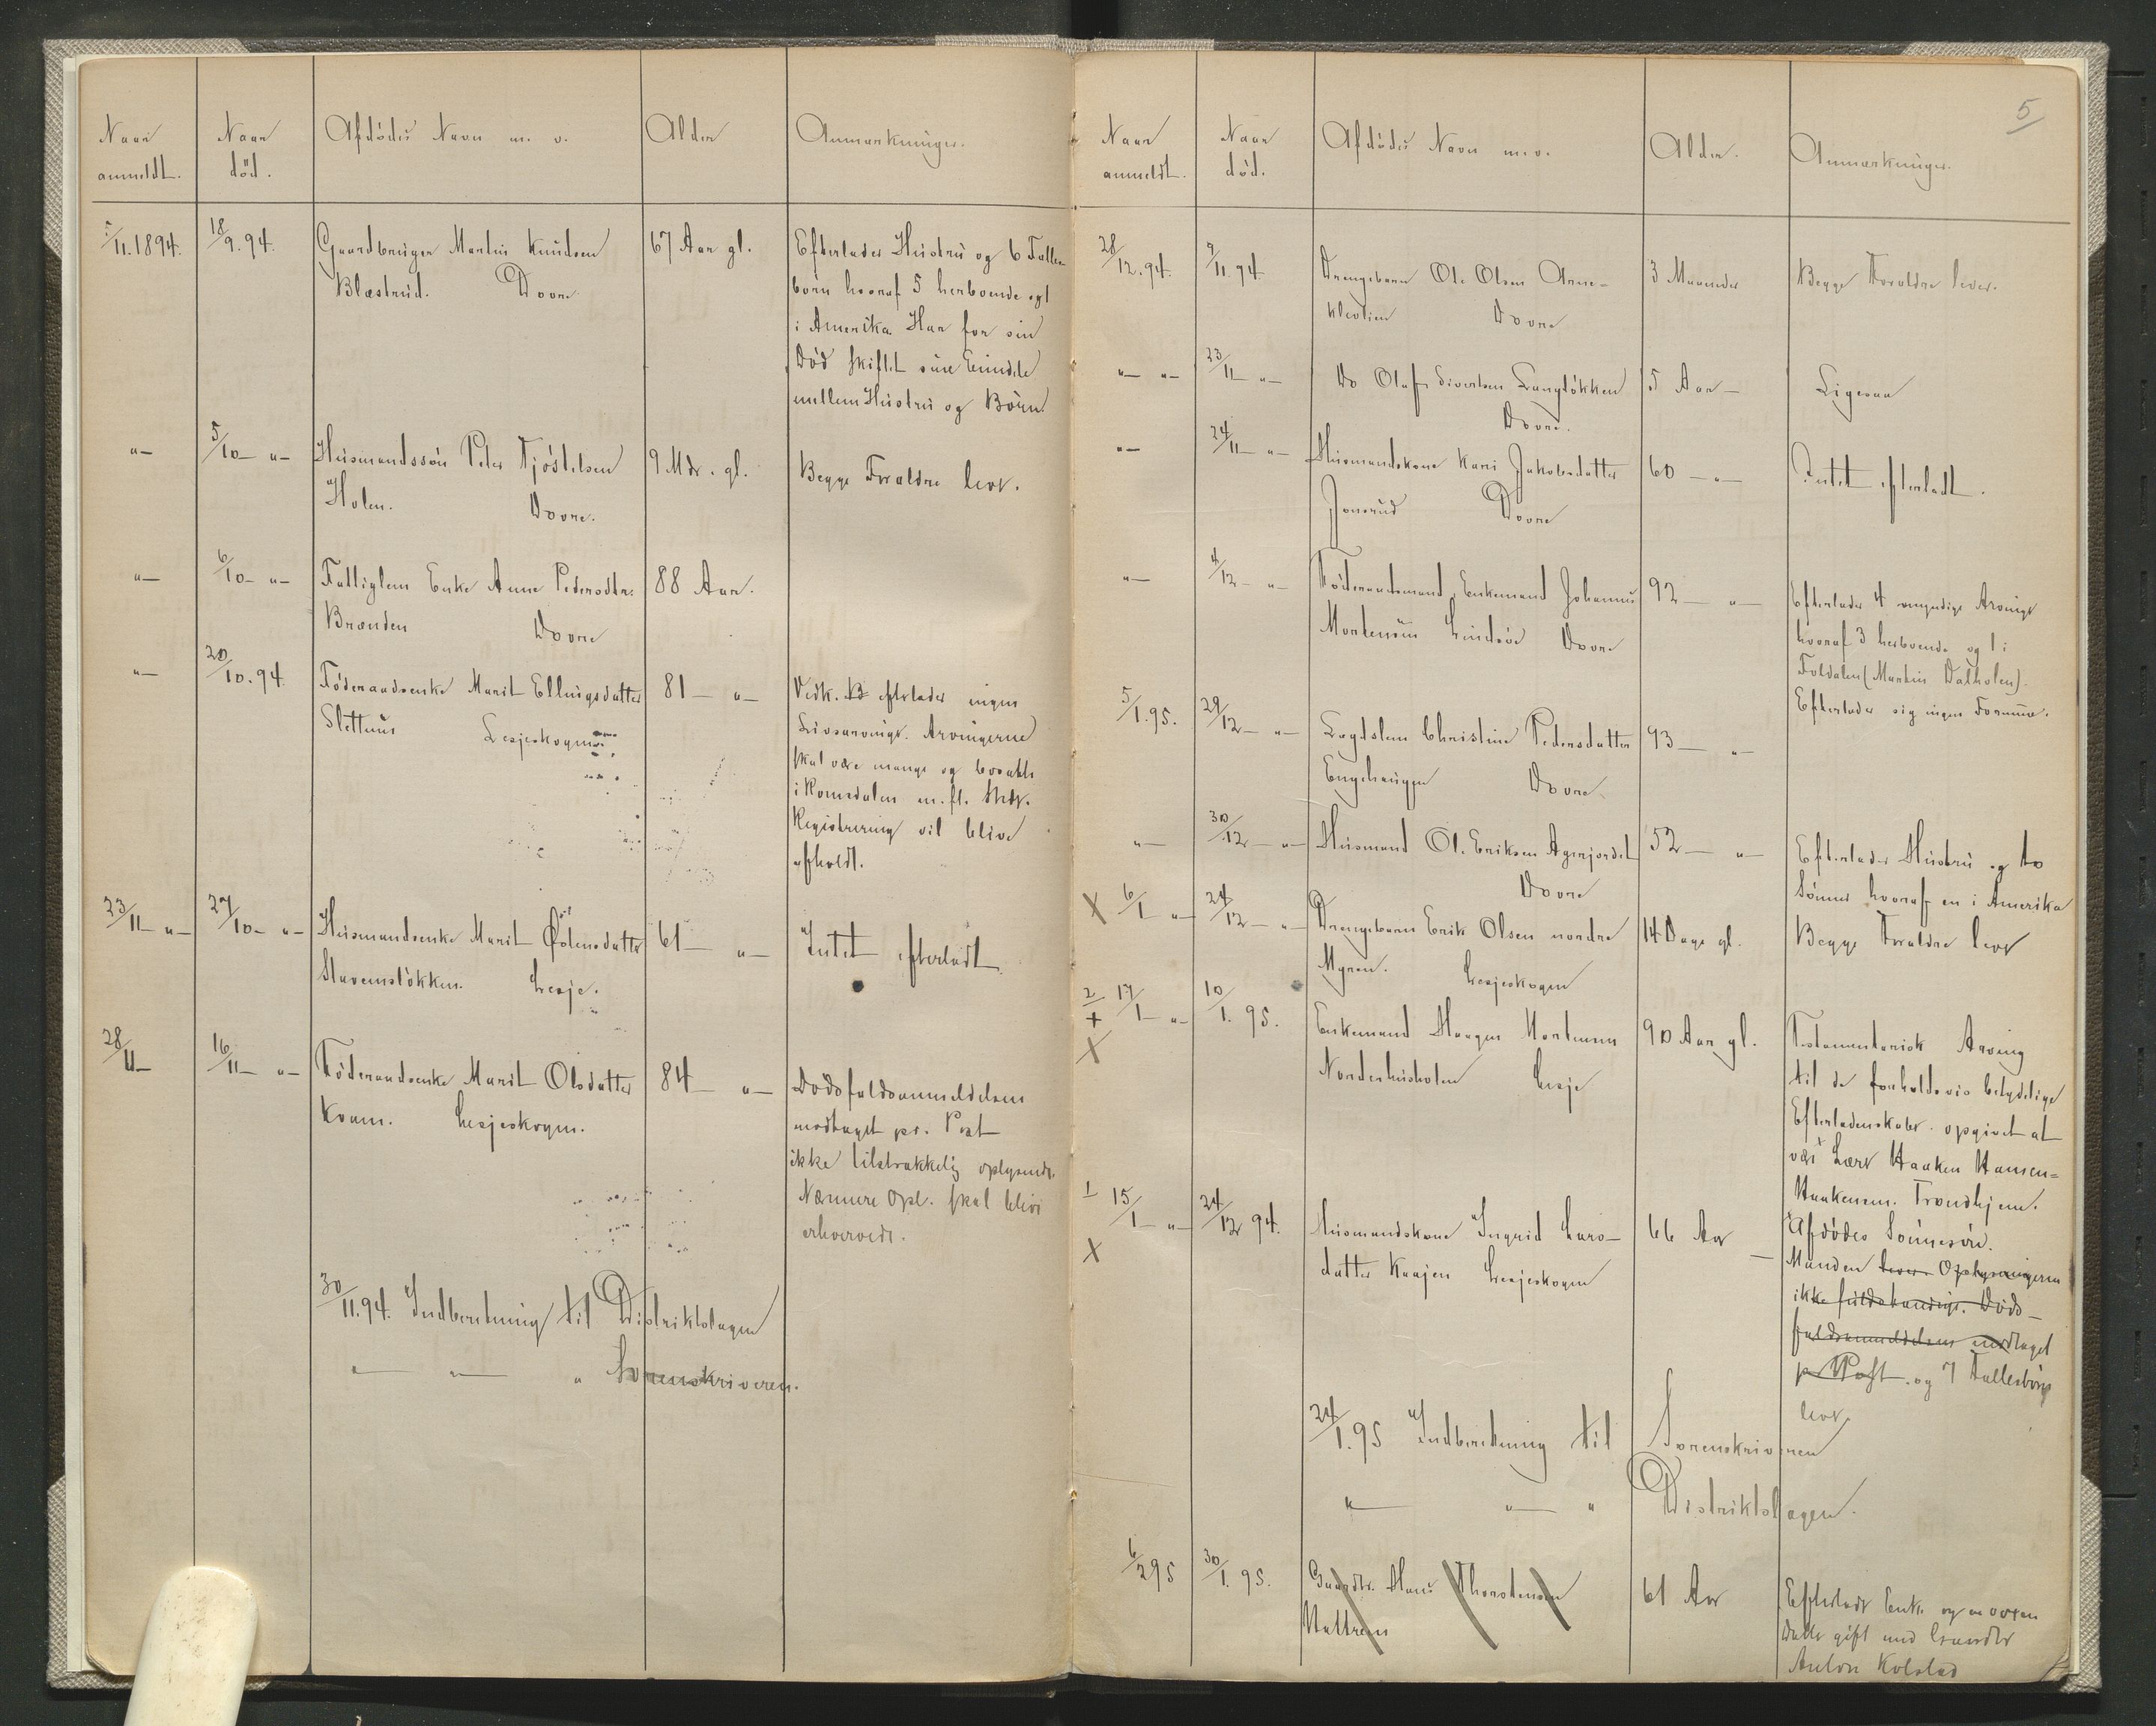 Naar anmeldt. Naar død. Afdødes Navn m. v. Alder Anmærkninger.
5/11.1894. 18/9.94. Gaardbruger Martin Knudsen 67 Aar gl. Efterlader Hustru og 6 Fælles-
Blæstrud. Dovre børn hvoraf 5 herboende og 1
i Amerika. Har før sin
Død skiftet sine Eiendele
mellem Hustru og Børn.
"— 5/10— "— Husmandssøn Peder Tjøstelsen 9 Mdr. gl. Begge Forældre lever.
Holen. Dovre.
"— 6/10— "— Fattiglem Enke Anne Pedersdtr. 88 Aar.
Brænden Dovre
"— 20/10.94. Føderaadsenke Marit Ellingsdatter 81— "— Vedk. efterlader ingen
Slettuus Lesjeskogen Livsarvinger. Arvingerne
skal være mange og bosatte
i Romsdalen m. fl. Stdr.
Registrering vil blive
afholdt.
23/11— "— 27/10— "— Husmandsenke Marit Østensdatter 61— "— Intet efterladt
Stavemsløkken. Lesje.
28/11— 16/11— "— Føderaadsenke Marit Olsdatter 84— "— Dødsfaldsanmeldelsen
Kvam. Lesjeskogen. modtaget pr. Post
ikke tilstrækkelig oplysende.
Nærmere Opl. skal blive
erhvervede.
30/11.94. Indberetning til Distriktslægen
"— "— " Sorenskriveren.
5
Naar anmeldt. Naar død. Afdødes Navn m.v. Alder. Anmærkninger.
28/12.94. 9/11.94. Drengebarn Ole Olsen Arne- 3 Maaneder Begge Forældre lever.
kleivlien Dovre
"— "— 23/11— "— Do Olaf Sivertsen Langløkken 5 Aar— Ligesaa
Dovre.
"— 24/11— "— Husmandskone Kari Jakobsdatter 60— "— Intet efterladt.
Jonsrud Dovre
"— 4/12— "— Føderaadsmand, Enkemand Johannes 92— "— Efterlader 4 myndige Arvinger
Mortensen Lindsøe Dovre hvoraf 3 herboende og 1 i
Foldalen (Martin Dalholen).
Efterlader sig ingen Formue.
5/1.95. 29/12— "— Lægdslem Christine Pedersdatter 93— "—
Engehaugen Dovre
"— 30/12— "— Husmand Ole Eriksen Agerjordet 52— "— Efterlader Hustru og to
Dovre Sønner hvoraf en i Amerika
X 6/1 "— 24/12— "— Drengebarn Erik Olsen nordre 14 Dage gl. Begge Forældre lever
Myren. Lesjeskogen
2/+ 17/1— "— 10/1. 95. Enkemand Haagen Mortensen 90 Aar gl. Testamentarisk Arving
X Norderhusholen Lesje til de forholdsvis betydelige
Efterladenskaber opgivet at
være Lærer Haaken Hansen=
Haakensen. Trondhjem.
Afdødes Sønnesøn.
1 15/1— "— 24/12 94. Husmandskone Ingrid Lars- 66 Aar — Manden lever. Oplysningerne
X datter Kaajen Lesjeskogen ikke fuldstændige. Døds-
faldsanmeldelsen modtaget
pr Post. og 7 Fællesbørn
lever.
24/1.95 Indberetning til Sorenskriveren
"— "— " Distriktslægen.
6/2 95 30/1. 95. Gaardbr. Hans Thorstensen 61 Aar Efterlader Enke og en voxen
Hattrem Datter gift med Gaardbr
Anton Kolstad